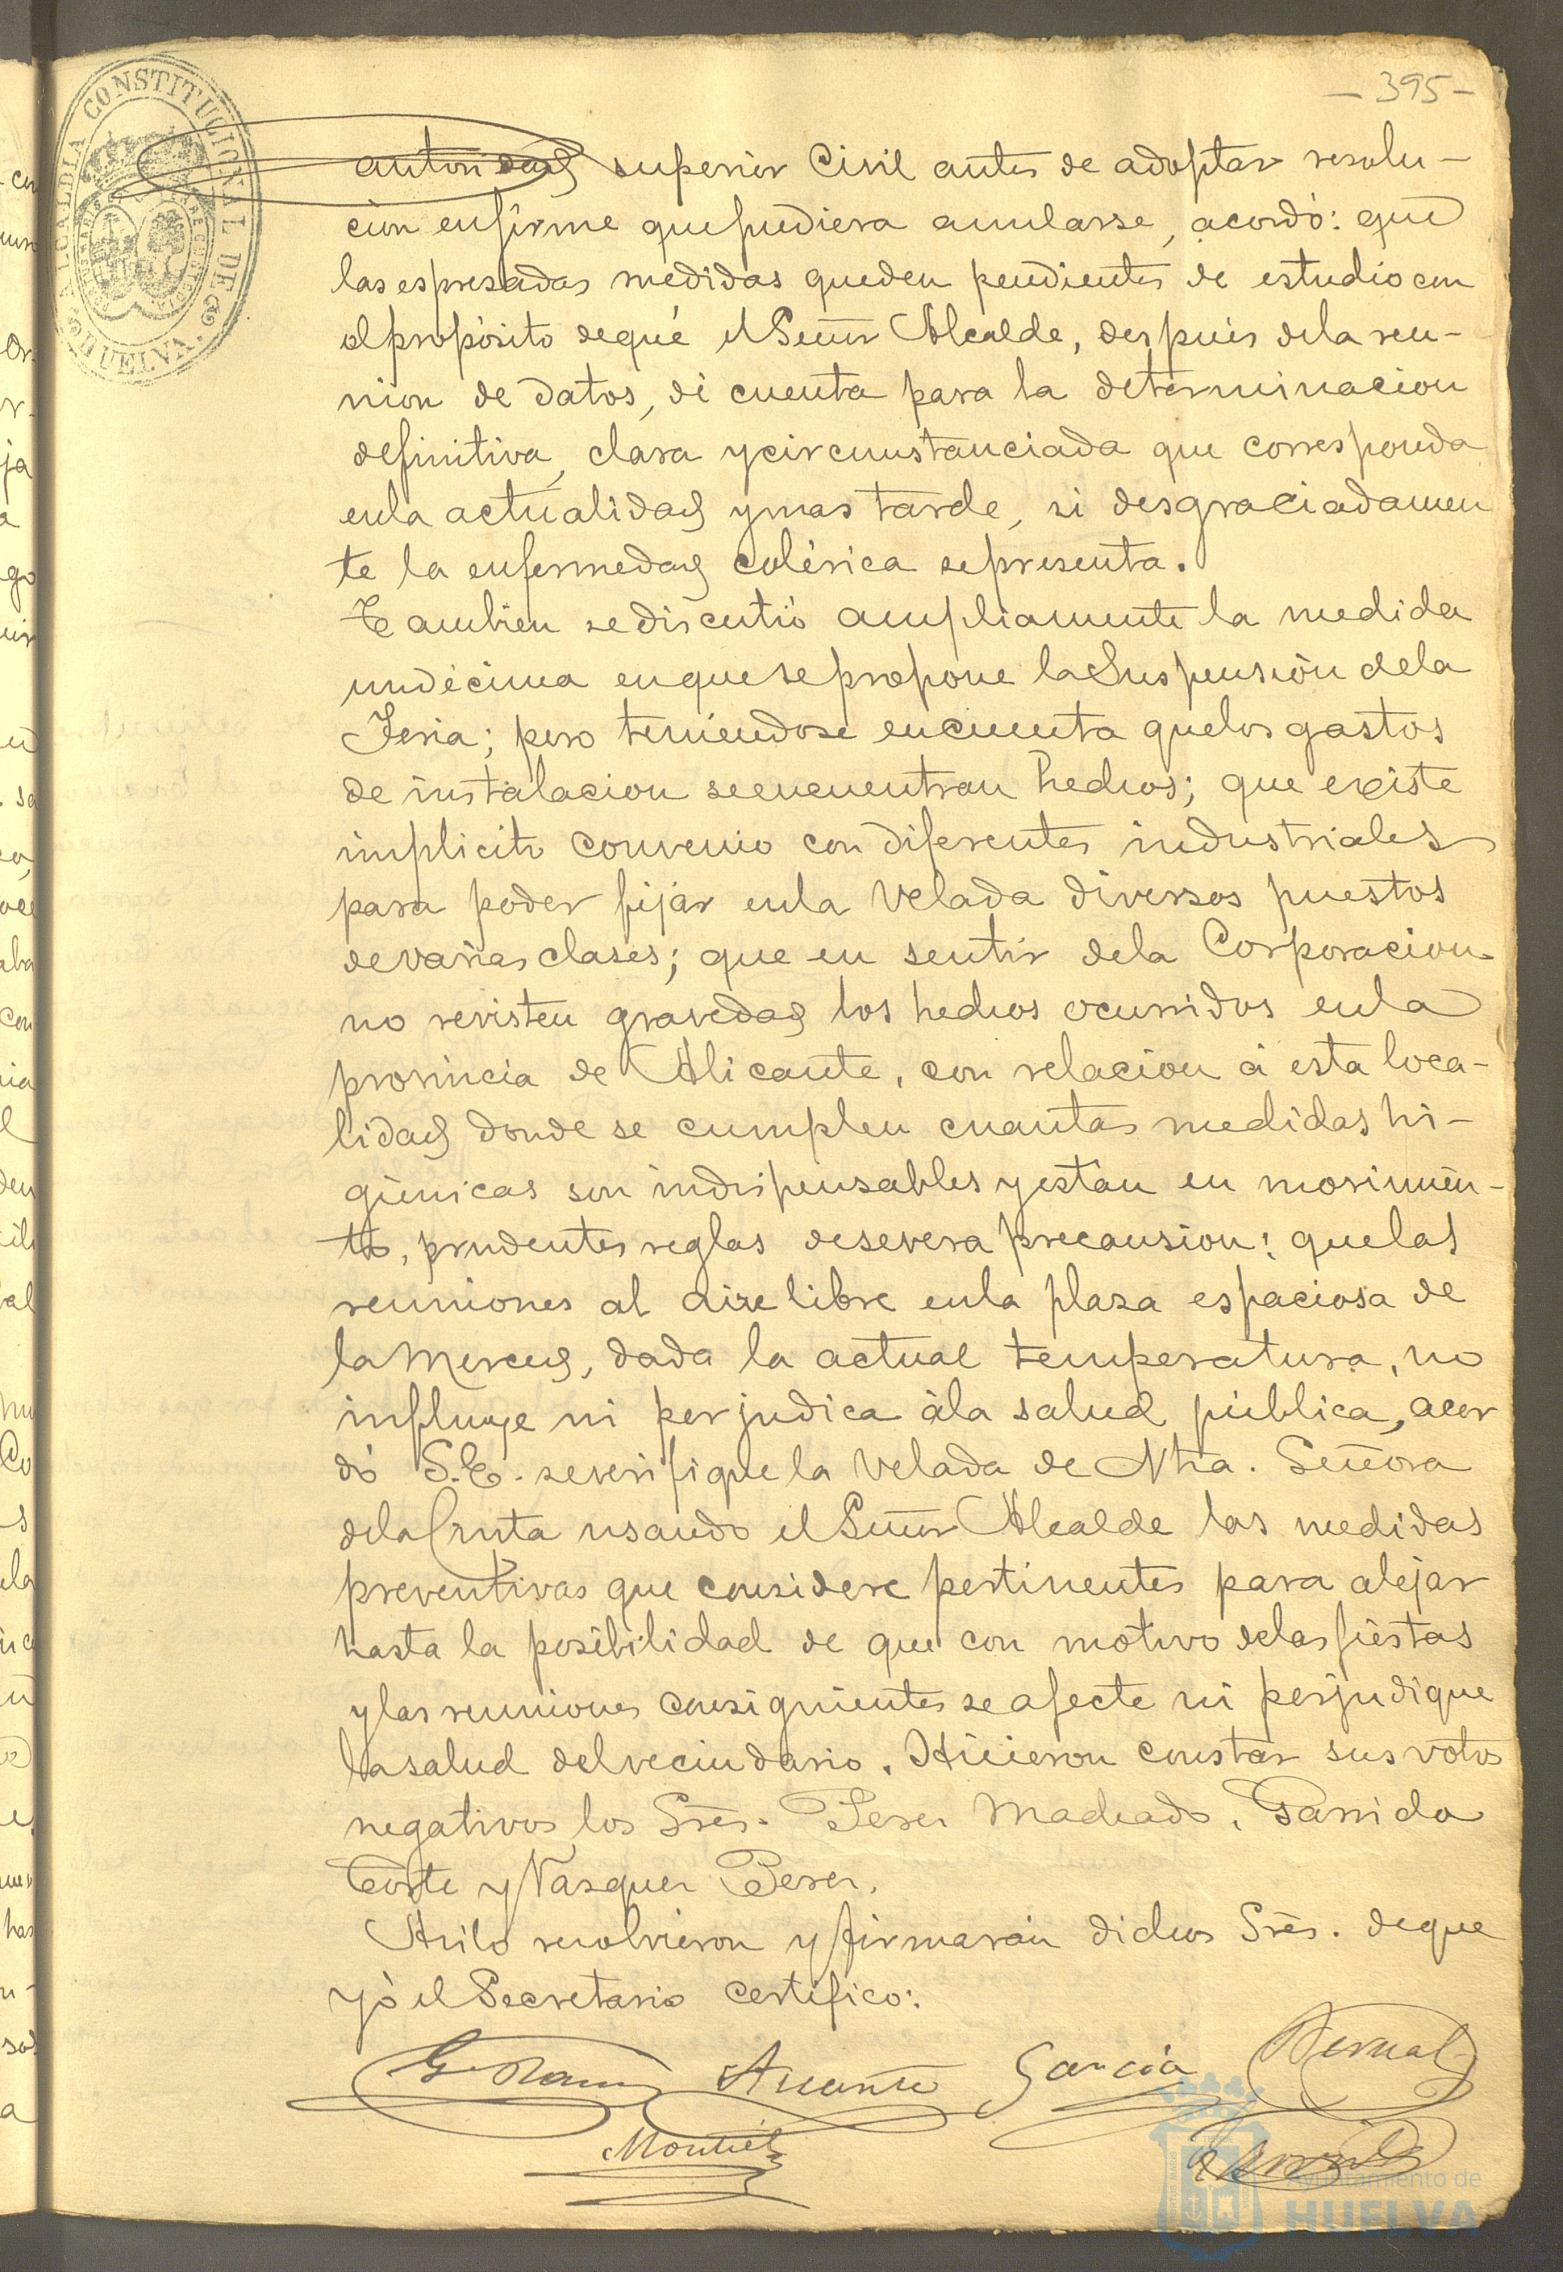 - 395 -
ALCALDIA CONSTITUCIONAL DE HUELVA.
autoridad superior Civil antes de adoptar resolu-
cion enfirme que pudiera anularse, acordó: que
las espresadas medidas queden pendientes de estudio con
el propósito de qué el Señor Alcalde, despues dela reu-
nion de datos, dé cuenta para la determinacion
definitiva, clara y circunstanciada que corresponda
enla actualidad y mas tarde, si desgraciadamen
te la enfermedad colérica se presenta.
Tambien se discutió ampliamente la medida
undécima en que se propone la Suspensión dela
Feria; pero teniendose encuenta que los gastos
de instalacion se encuentran hechos; que existe
implicito convenio con diferentes industriales
para poder fijar enla Velada diversos puestos
de varias clases; que en sentir dela Corporacion
no revisten gravedad los hechos ocurridos enla
provincia de Alicante, con relacion á esta loca-
lidad donde se cumplen cuantas medidas hi-
giénicas son indispensables y están en movimien-
to, prudentes reglas de severa precausion; que las
reuniones al aire libre enla plaza espaciosa de
la Merced, dada la actual temperatura, no
influye ni perjudica àla salud pública, acor
dó S.E. se verifique la Velada de Ntra. Señora
dela Cinta usando el Señor Alcalde las medidas
preventivas que considere pertinentes para alejar
hasta la posibilidad de que con motivo delas fiestas
y las reuniones consiguientes se afecte ni perjudique
la salud del vecindario. Hicieron constar sus votos
negativos los Srés. Perez Machado, Garrido
Corte y Vazquez Perez.
Asi lo resolvieron y firmarán dichos Srés. de que
yó el Secretario certifico:
García Bernal
Montiel
Ayuntamiento de
HUELVA